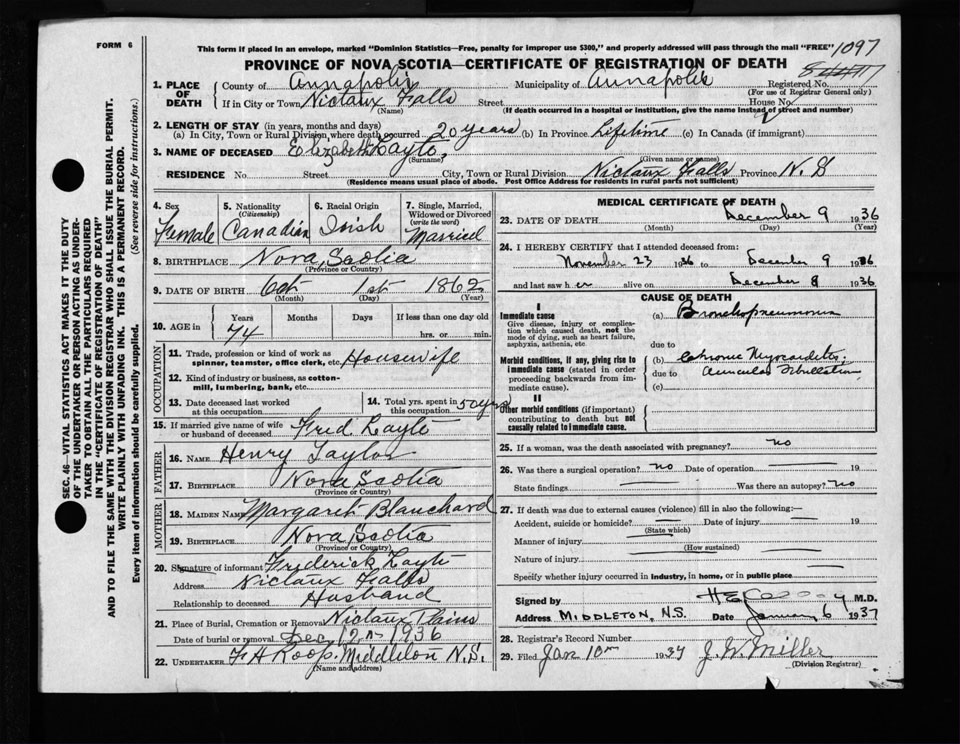 FORM 6
This form if placed in an envelope, marked "Dominion Statistics—Free, penalty for improper use $300," and properly addressed will pass through the mail "FREE"
1097
PROVINCE OF NOVA SCOTIA—CERTIFICATE OF REGISTRATION OF DEATH
1. PLACE OF DEATH County of Annapolis Municipality of Annapolis Registered No.
(For use of Registrar General only)
If in City or Town Nictaux Falls Street House No.
(Name) (If death occurred in a hospital or institution, give the name instead of street and number)
2. LENGTH OF STAY (in years, months and days)
(a) In City, Town or Rural Division where death occurred 20 years (b) In Province Lifetime (c) In Canada (if immigrant)
3. NAME OF DECEASED Elizabeth Layte
(Surname) (Given name or names)
RESIDENCE No. Street City, Town or Rural Division Nictaux Falls Province N.S
(Residence means usual place of abode. Post Office Address for residents in rural parts not sufficient)
SEC. 46—VITAL STATISTICS ACT MAKES IT THE DUTY
OF THE UNDERTAKER OR PERSON ACTING AS UNDER-
TAKER TO OBTAIN ALL THE PARTICULARS REQUIRED
IN THE "CERTIFICATE OF REGISTRATION OF DEATH"
AND TO FILE THE SAME WITH THE DIVISION REGISTRAR WHO SHALL ISSUE THE BURIAL PERMIT.
WRITE PLAINLY WITH UNFADING INK. THIS IS A PERMANENT RECORD.
Every item of information should be carefully supplied. (See reverse side for instructions.)
4. Sex Female
5. Nationality (Citizenship) Canadian
6. Racial Origin Irish
7. Single, Married, Widowed or Divorced (write the word) Married
8. BIRTHPLACE Nova Scotia
(Province or Country)
9. DATE OF BIRTH Oct 1st 1862
(Month) (Day) (Year)
10. AGE in Years Months Days If less than one day old
74 hrs. or min.
OCCUPATION
11. Trade, profession or kind of work as spinner, teamster, office clerk, etc. Housewife
12. Kind of industry or business, as cotton-mill, lumbering, bank, etc.
13. Date deceased last worked at this occupation
14. Total yrs. spent in this occupation 50 yrs
15. If married give name of wife or husband of deceased Fred Layte
FATHER
16. NAME Henry Taylor
17. BIRTHPLACE Nova Scotia
(Province or Country)
MOTHER
18. MAIDEN NAME Margaret Blanchard
19. BIRTHPLACE Nova Scotia
(Province or Country)
20. Signature of informant Frederick Layte
Address Nictaux Falls
Relationship to deceased Husband
21. Place of Burial, Cremation or Removal Nictaux Plains
Date of burial or removal Dec 12th 1936
22. UNDERTAKER F H Roop, Middleton N.S.
(Name and address)
MEDICAL CERTIFICATE OF DEATH
23. DATE OF DEATH December 9 1936
(Month) (Day) (Year)
24. I HEREBY CERTIFY that I attended deceased from:
November 23 1936 to December 9 1936
and last saw her alive on December 8 1936
CAUSE OF DEATH
I
Immediate cause
Give disease, injury or complication which caused death, not the mode of dying, such as heart failure, asphyxia, asthenia, etc
(a) Bronchopneumonia
due to
Morbid conditions, if any, giving rise to immediate cause (stated in order proceeding backwards from immediate cause).
(b) Chronic Myocarditis;
due to Auricular Fibrillation
(c)
II
Other morbid conditions (if important) contributing to death but not causally related to immediate cause.
25. If a woman, was the death associated with pregnancy? no
26. Was there a surgical operation? no Date of operation 19
State findings Was there an autopsy? no
27. If death was due to external causes (violence) fill in also the following:—
Accident, suicide or homicide? Date of injury 19
(State which)
Manner of injury
(How sustained)
Nature of injury
Specify whether injury occurred in industry, in home, or in public place
Signed by M.D.
Address MIDDLETON, N.S. Date January 6 1937
28. Registrar's Record Number
29. Filed Jan 10th 1937 J. W. Miller
(Division Registrar)